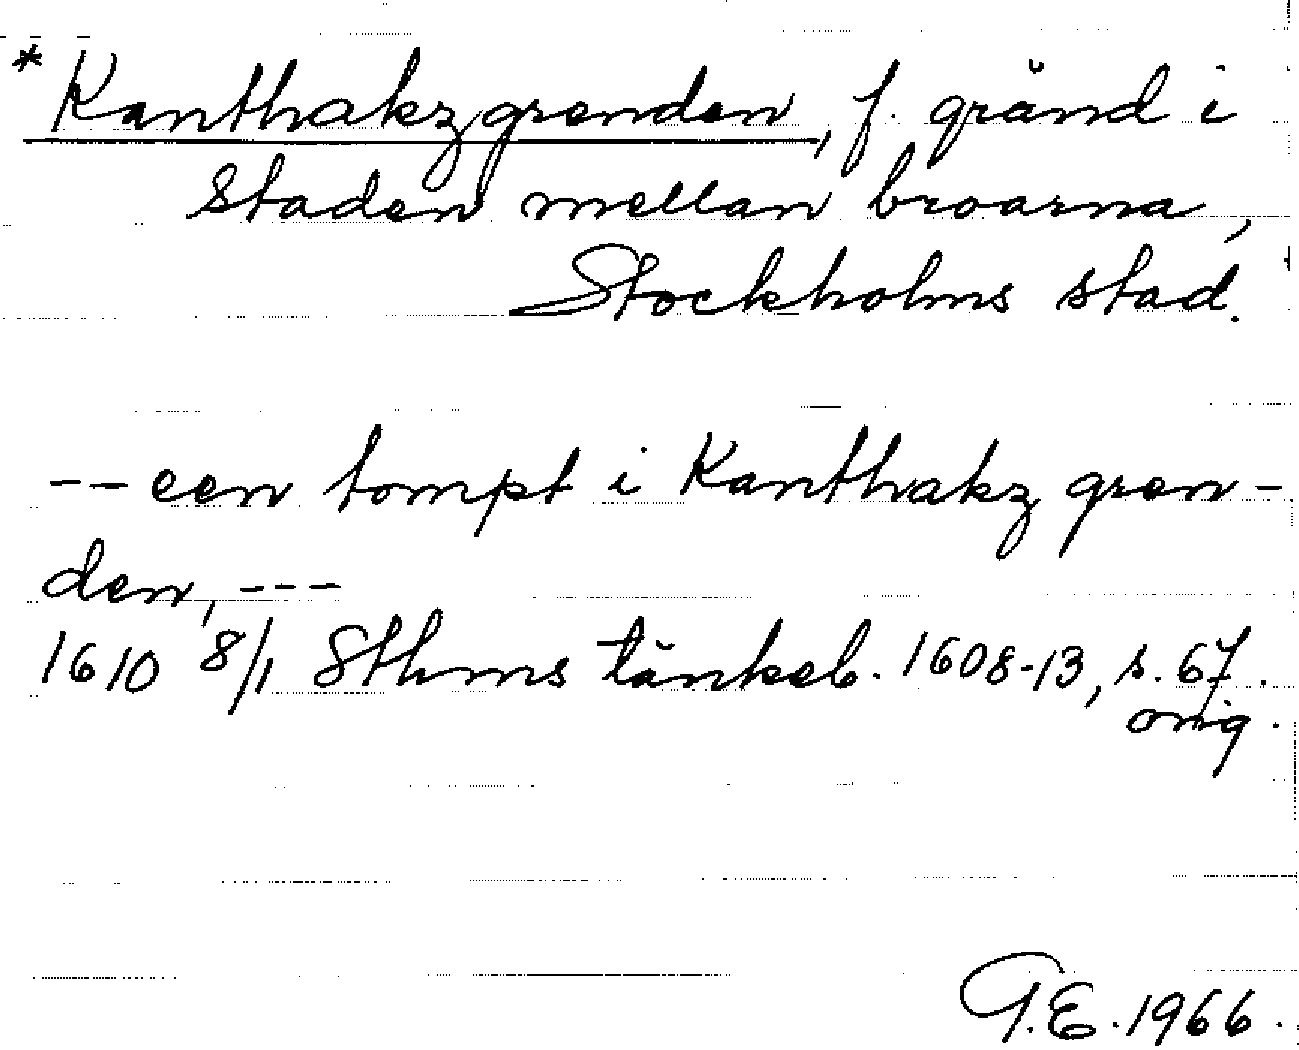 * Kanthakzgrenden, f. gränd i
staden mellan broarna,
Stockholms stad.
-- een tompt i Kanthakz gren-
den, ---
1610 8/1 Sthms tänkeb. 1608-13, s. 67.
orig.
G.E. 1966.